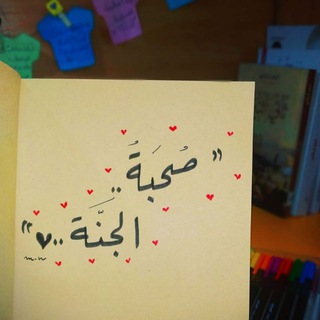 " صُحبَةُ ..
الجَنَّة ..♥ "
m.n